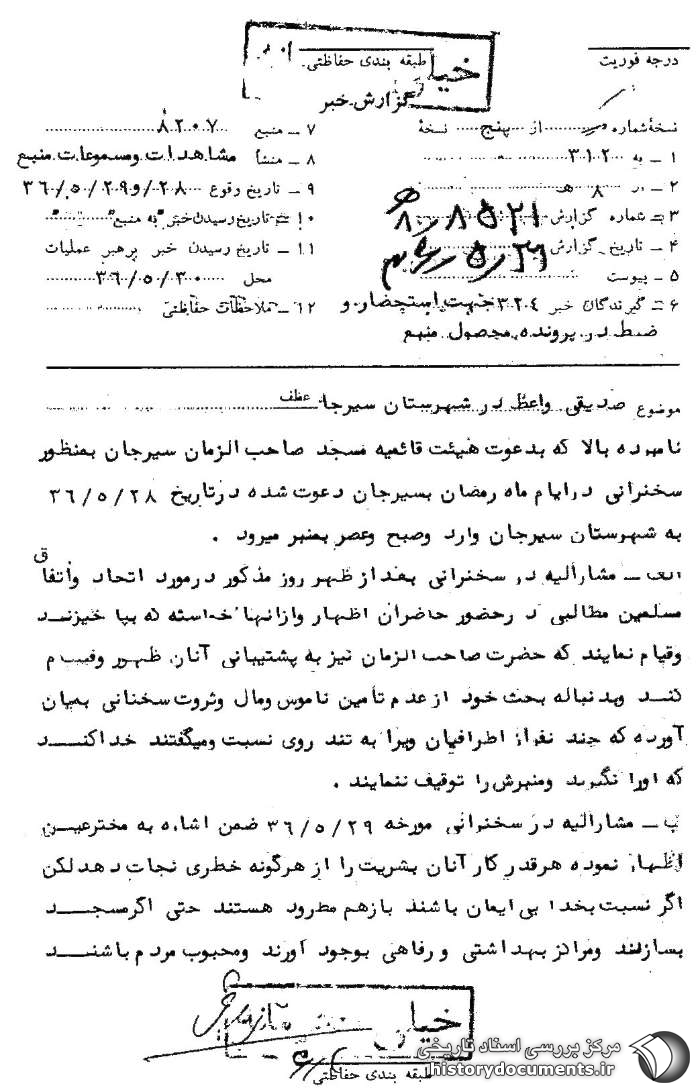 درجه فوریت
طبقه بندی حفاظتی
خیلی
گزارش خبر
نسخهٔ شماره از پنج نسخهٔ
۱ ـ به ۳۱۲
۲ ـ از ۸ هـ
۳ ـ شماره گزارش ۸۵۲۱ / ۸ هـ
۴ ـ تاریخ گزارش ۳۶/۵/۳۱
۵ ـ پیوست
۶ ـ گیرندگان خبر ۳۲۴ جهت استحضار و
ضبط در پرونده محصول منبع
۷ ـ منبع ۸۲۰۷
۸ ـ منشأ مشاهدات و مسموعات منبع
۹ ـ تاریخ وقوع ۲۸ و ۳۶/۵/۲۹
۱۰ ـ تاریخ رسیدن خبر به منبع
۱۱ ـ تاریخ رسیدن خبر برهبر عملیات
محل ۳۶/۵/۳۰
۱۲ ـ ملاحظات حفاظتی
موضوع صدیقی واعظ در شهرستان سیرجان عطف
نامبرده بالا که بدعوت هیئت قائمیه مسجد صاحب الزمان سیرجان بمنظور
سخنرانی در ایام ماه رمضان بسیرجان دعوت شده در تاریخ ۳۶/۵/۲۸
به شهرستان سیرجان وارد وصبح وعصر بمنبر میرود .
الف ـ مشارالیه در سخنرانی بعد از ظهر روز مذکور در مورد اتحاد واتفاق
مسلمین مطالبی در حضور حاضران اظهار و از آنها خواسته که بپا خیزند
وقیام نمایند که حضرت صاحب الزمان نیز به پشتیبانی آنان ظهور وقیام
کند وبدنباله بحث خود از عدم تأمین ناموس ومال وثروت سخنانی بمیان
آورده که چند نفر از اطرافیان ویرا به تند روی نسبت ومیگفتند خدا کند
که اورا نگیرند ومنبرش را توقیف ننمایند .
ب ـ مشارالیه در سخنرانی مورخه ۳۶/۵/۲۹ ضمن اشاره به مخترعین
اظهار نموده هرقدر کار آنان بشریت را از هرگونه خطری نجات دهد لکن
اگر نسبت بخدا بی ایمان باشند بازهم مطرود هستند حتی اگر مسجد
بسازند ومراکز بهداشتی و رفاهی بوجود آورند ومحبوب مردم باشند
خیلی
طبقه بندی حفاظتی
مرکز بررسی اسناد تاریخی
historydocuments.ir